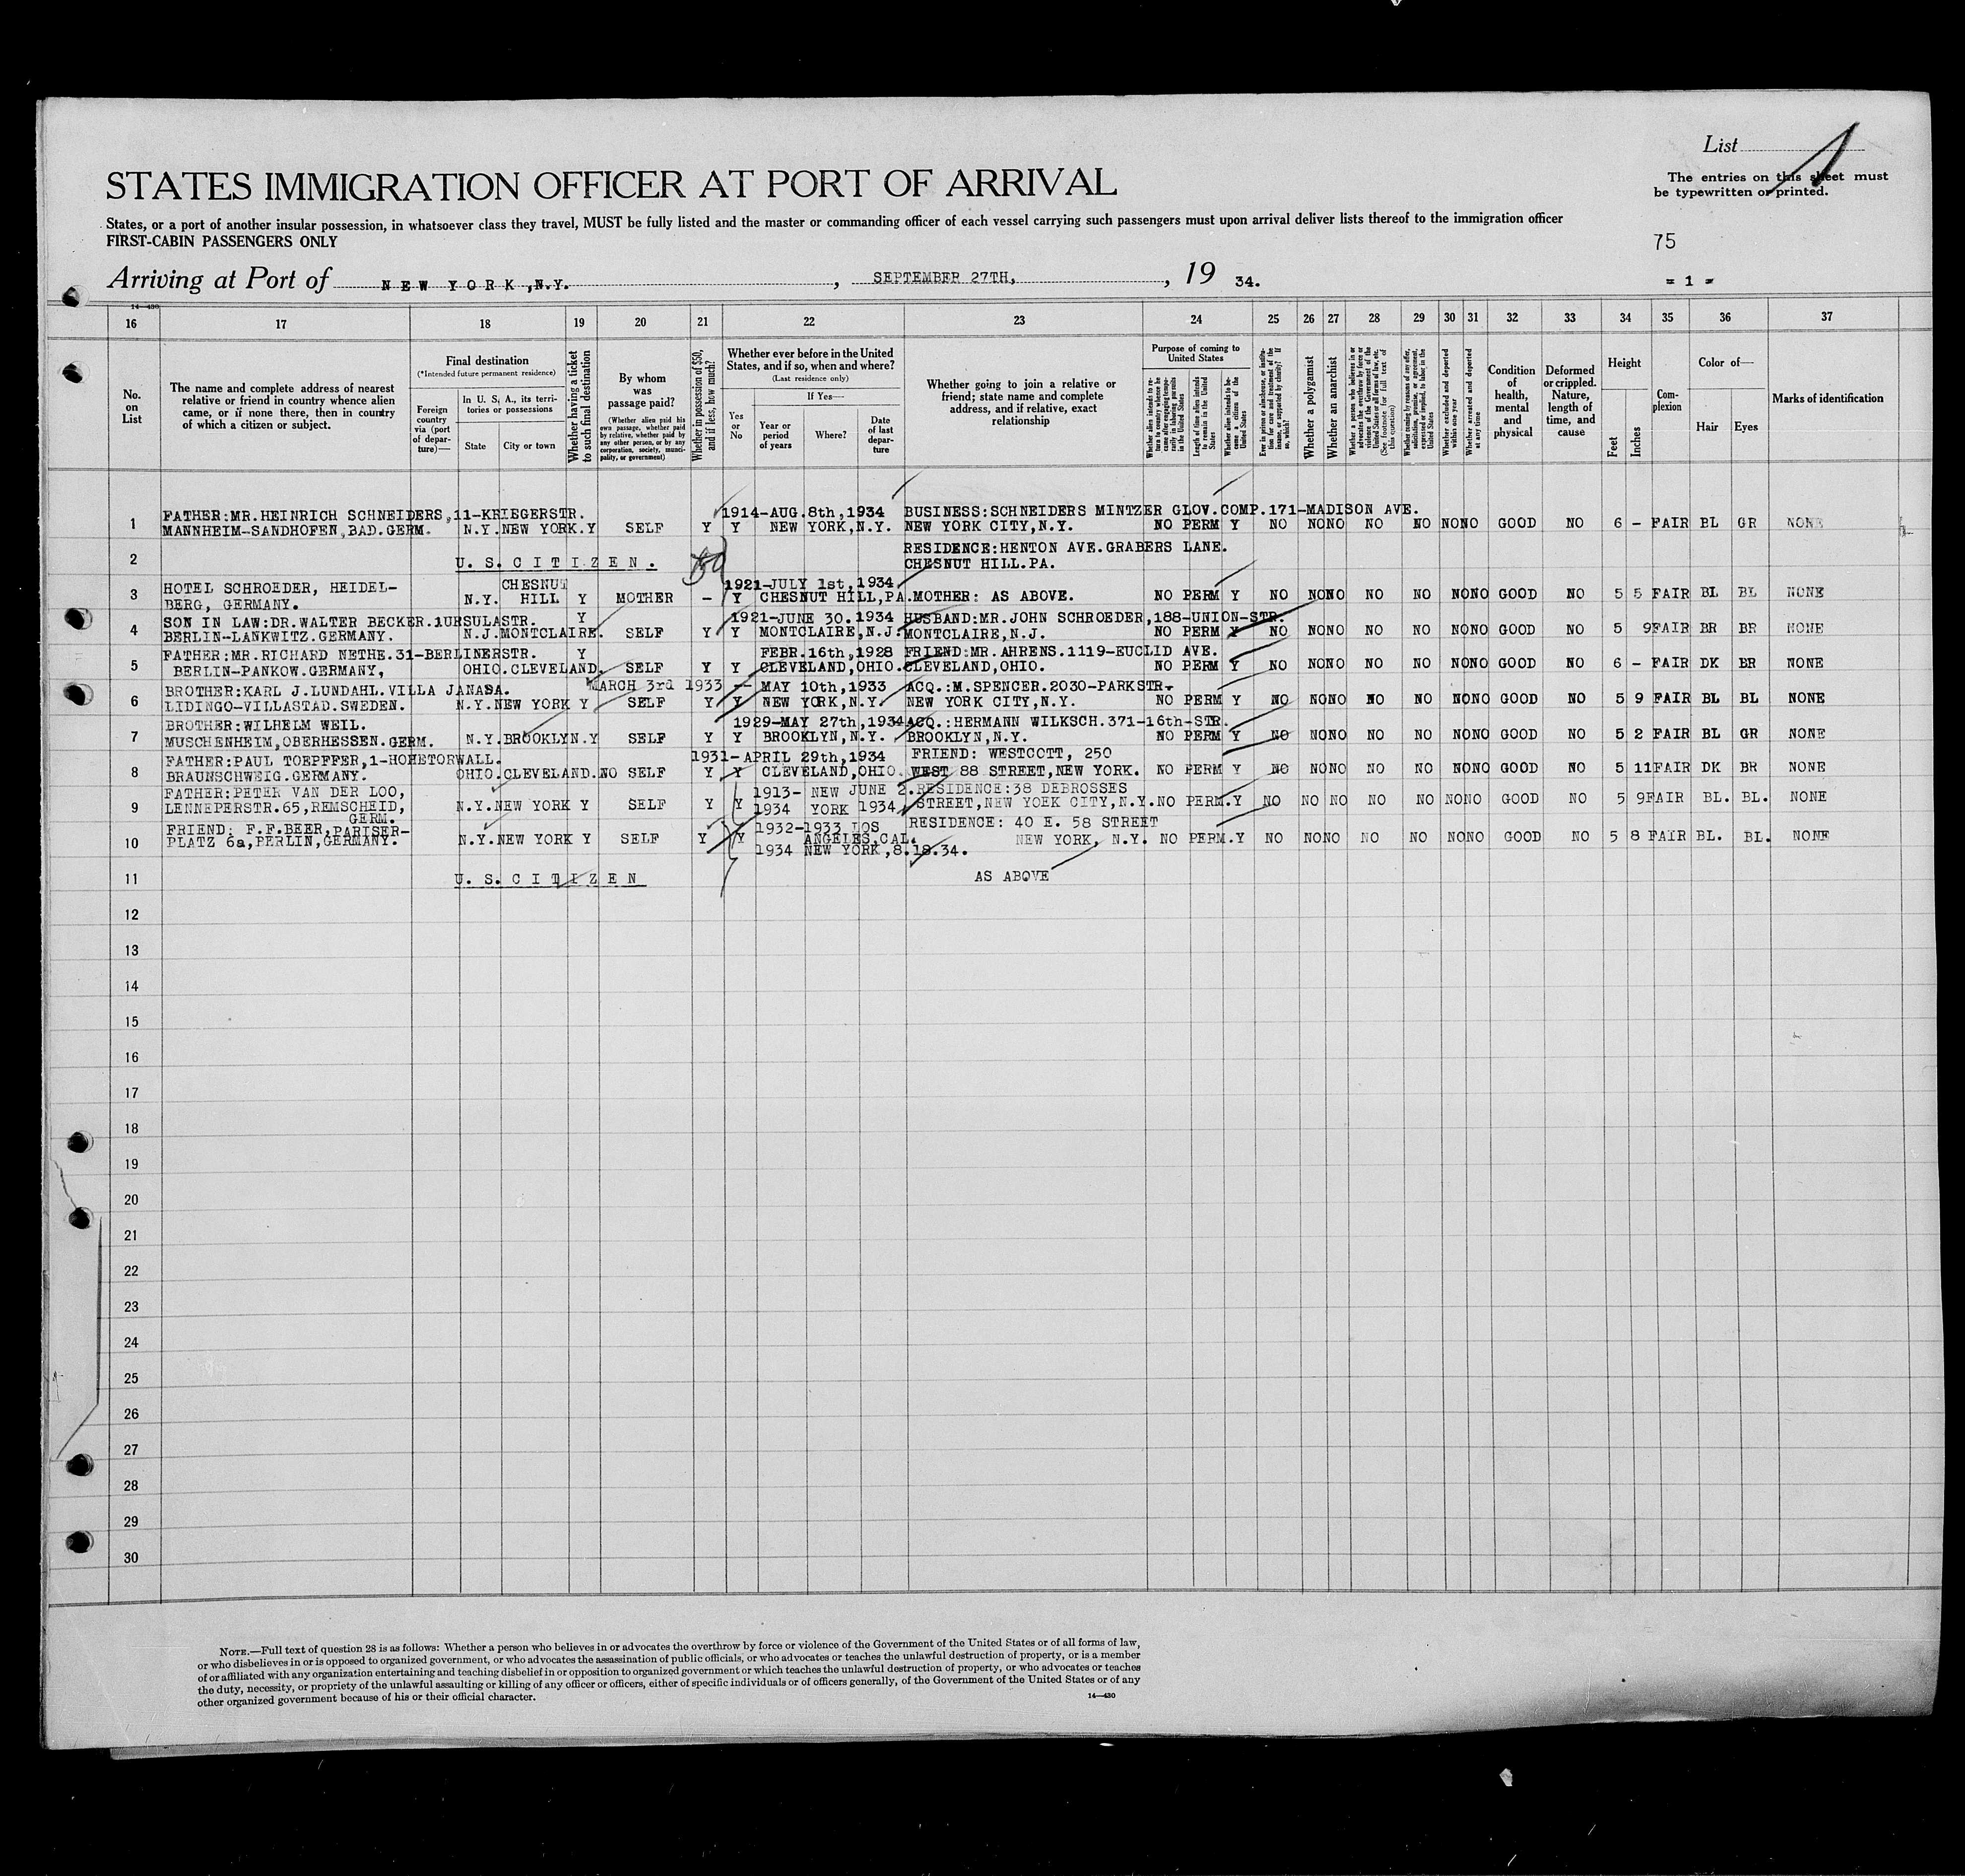 List 1
STATES IMMIGRATION OFFICER AT PORT OF ARRIVAL
The entries on this sheet must
be typewritten or printed.
States, or a port of another insular possession, in whatsoever class they travel, MUST be fully listed and the master or commanding officer of each vessel carrying such passengers must upon arrival deliver lists thereof to the immigration officer
FIRST-CABIN PASSENGERS ONLY
75
Arriving at Port of NEW YORK, N.Y. , SEPTEMBER 27TH, , 19 34.
= 1 =
14—430
16 17 18 19 20 21 22 23 24 25 26 27 28 29 30 31 32 33 34 35 36 37
No. on List
The name and complete address of nearest relative or friend in country whence alien came, or if none there, then in country of which a citizen or subject.
Final destination
(*Intended future permanent residence)
Foreign country via (port of departure)—
In U. S. A., its territories or possessions
State
City or town
Whether having a ticket to such final destination
By whom was passage paid?
(Whether alien paid his own passage, whether paid by relative, whether paid by any other person, or by any corporation, society, municipality, or government)
Whether in possession of $50, and if less, how much?
Whether ever before in the United States, and if so, when and where?
(Last residence only)
Yes or No
If Yes—
Year or period of years
Where?
Date of last departure
Whether going to join a relative or friend; state name and complete address, and if relative, exact relationship
Purpose of coming to United States
Whether alien intends to return to country whence he came after engaging temporarily in laboring pursuits in the United States
Length of time alien intends to remain in the United States
Whether alien intends to become a citizen of the United States
Ever in prison or almshouse, or institution for care and treatment of the insane, or supported by charity? If so, which?
Whether a polygamist
Whether an anarchist
Whether a person who believes in or advocates the overthrow by force or violence of the Government of the United States or all forms of law, etc. (See footnote for full text of this question)
Whether coming by reasons of any offer, solicitation, promise, or agreement, expressed or implied, to labor in the United States
Whether excluded and deported within one year
Whether arrested and deported at any time
Condition of health, mental and physical
Deformed or crippled. Nature, length of time, and cause
Height
Feet
Inches
Complexion
Color of—
Hair
Eyes
Marks of identification
1 FATHER:MR.HEINRICH SCHNEIDERS,11-KRIEGERSTR. 1914-AUG.8th,1934 BUSINESS:SCHNEIDERS MINTZER GLOV.COMP.171-MADISON AVE.
MANNHEIM-SANDHOFEN,BAD.GERM. N.Y. NEW YORK.Y SELF Y Y NEW YORK,N.Y. NEW YORK CITY,N.Y. NO PERM Y NO NO NO NO NO NO NO GOOD NO 6 - FAIR BL GR NONE
2 U. S. C I T I Z E N . RESIDENCE:HENTON AVE.GRABERS LANE.
CHESNUT HILL.PA.
3 HOTEL SCHROEDER, HEIDEL- CHESNUT 1921-JULY 1st,1934
BERG, GERMANY. N.Y. HILL Y MOTHER - Y CHESNUT HILL,PA.MOTHER: AS ABOVE. NO PERM Y NO NO NO NO NO NO NO GOOD NO 5 5 FAIR BL BL NONE
4 SON IN LAW:DR.WALTER BECKER.1URSULASTR. Y 1921-JUNE 30.1934 HUSBAND:MR.JOHN SCHROEDER,188-UNION-STR.
BERLIN-LANKWITZ.GERMANY. N.J.MONTCLAIRE. SELF Y Y MONTCLAIRE,N.J. MONTCLAIRE,N.J. NO PERM Y NO NO NO NO NO NO NO GOOD NO 5 9 FAIR BR BR NONE
5 FATHER:MR.RICHARD NETHE.31-BERLINERSTR. Y FEBR.16th,1928 FRIEND:MR.AHRENS.1119-EUCLID AVE.
BERLIN-PANKOW.GERMANY, OHIO.CLEVELAND. SELF Y Y CLEVELAND,OHIO.CLEVELAND,OHIO. NO PERM Y NO NO NO NO NO NO NO GOOD NO 6 - FAIR DK BR NONE
6 BROTHER:KARL J.LUNDAHL.VILLA JANASA. MARCH 3rd 1933 -- MAY 10th,1933 ACQ.:M.SPENCER.2030-PARKSTR.
LIDINGO-VILLASTAD.SWEDEN. N.Y.NEW YORK Y SELF Y Y NEW YORK,N.Y. NEW YORK CITY,N.Y. NO PERM Y NO NO NO NO NO NO NO GOOD NO 5 9 FAIR BL BL NONE
7 BROTHER:WILHELM WEIL. 1929-MAY 27th,1934 ACQ.:HERMANN WILKSCH.371-16th-STR.
MUSCHENHEIM,OBERHESSEN.GERM. N.Y.BROOKLYN.Y SELF Y Y BROOKLYN,N.Y. BROOKLYN,N.Y. NO PERM Y NO NO NO NO NO NO NO GOOD NO 5 2 FAIR BL GR NONE
8 FATHER:PAUL TOEPFFER,1-HOHETORWALL. 1931-APRIL 29th,1934 FRIEND: WESTCOTT, 250
BRAUNSCHWEIG.GERMANY. OHIO.CLEVELAND.NO SELF Y Y CLEVELAND,OHIO. WEST 88 STREET,NEW YORK. NO PERM Y NO NO NO NO NO NO NO GOOD NO 5 11 FAIR DK BR NONE
9 FATHER:PETER VAN DER LOO, 1913- NEW JUNE 2. RESIDENCE:38 DEBROSSES
LENNEPERSTR.65,REMSCHEID, N.Y.NEW YORK Y SELF Y Y 1934 YORK 1934 STREET,NEW YORK CITY,N.Y.NO PERM.Y NO NO NO NO NO NO NO GOOD NO 5 9 FAIR BL. BL. NONE
GERM.
10 FRIEND: F.F.BEER,PARISER- 1932-1933 LOS RESIDENCE: 40 E. 58 STREET
PLATZ 6a,BERLIN,GERMANY. N.Y.NEW YORK Y SELF Y Y ANGELES,CAL. NEW YORK, N.Y. NO PERM.Y NO NO NO NO NO NO NO GOOD NO 5 8 FAIR BL. BL. NONE
1934 NEW YORK,8.18.34.
11 U. S. C I T I Z E N AS ABOVE
12
13
14
15
16
17
18
19
20
21
22
23
24
25
26
27
28
29
30
NOTE.—Full text of question 28 is as follows: Whether a person who believes in or advocates the overthrow by force or violence of the Government of the United States or of all forms of law,
or who disbelieves in or is opposed to organized government, or who advocates the assassination of public officials, or who advocates or teaches the unlawful destruction of property, or is a member
of or affiliated with any organization entertaining and teaching disbelief in or opposition to organized government or which teaches the unlawful destruction of property, or who advocates or teaches
the duty, necessity, or propriety of the unlawful assaulting or killing of any officer or officers, either of specific individuals or of officers generally, of the Government of the United States or of any
other organized government because of his or their official character.
14—430